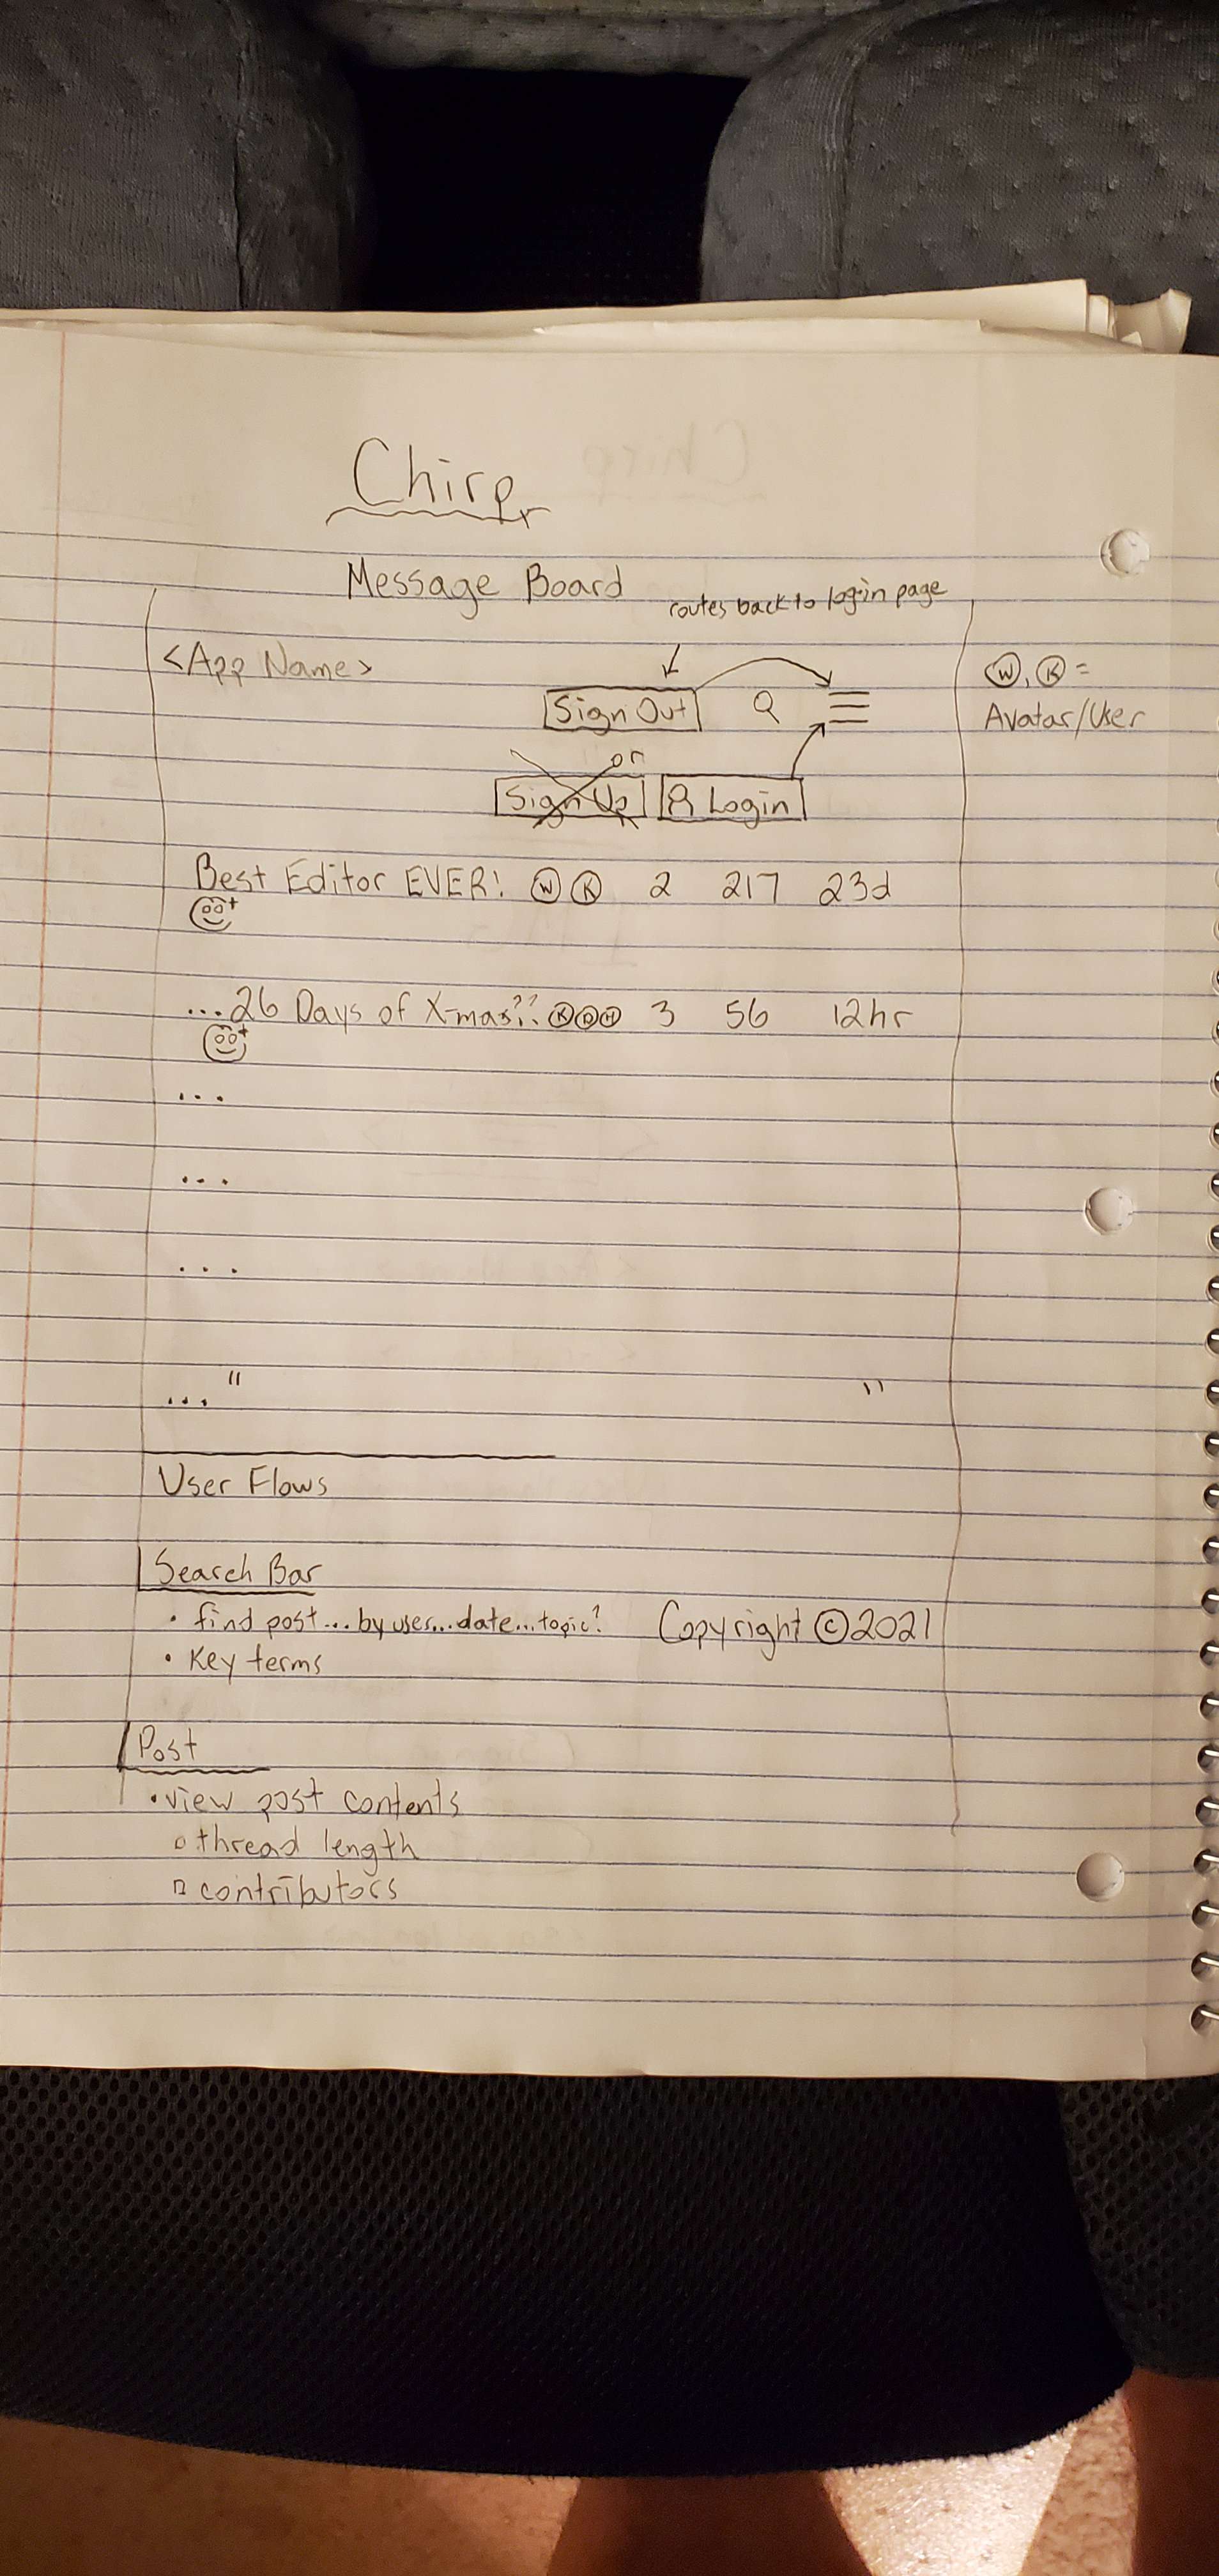 Chirp
Message Board
routes back to login page
<App Name>
Sign Out
or
Sign Up
Login
W, K =
Avatar/User
Best Editor EVER! W K 2 217 23d
...26 Days of X-mas?? K 3 56 12hr
...
...
...
... " "
User Flows
Search Bar
• find post...by user...date...topic?
• Key terms
Copyright ©2021
Post
• view post contents
▫ thread length
▫ contributors